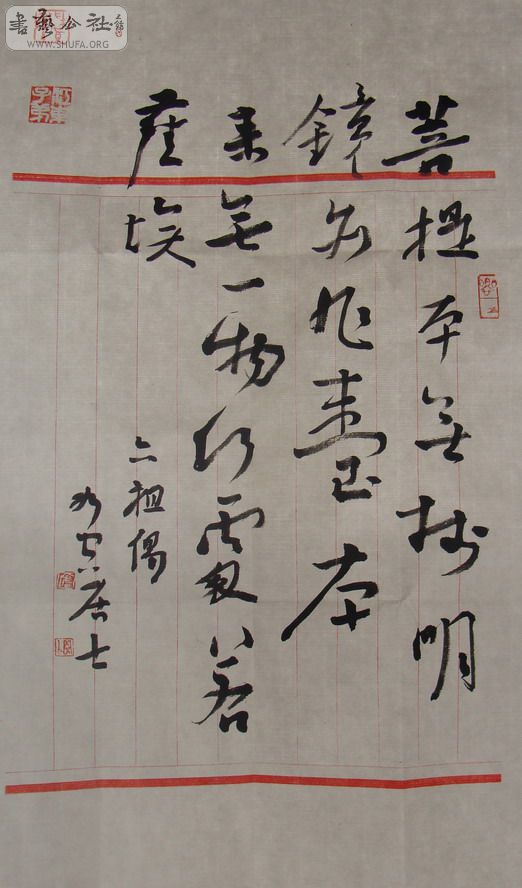 書藝公社
WWW.SHUFA.ORG
菩提本無樹明
鏡亦非臺本
来無一物何處惹
塵埃
六祖偈
居士